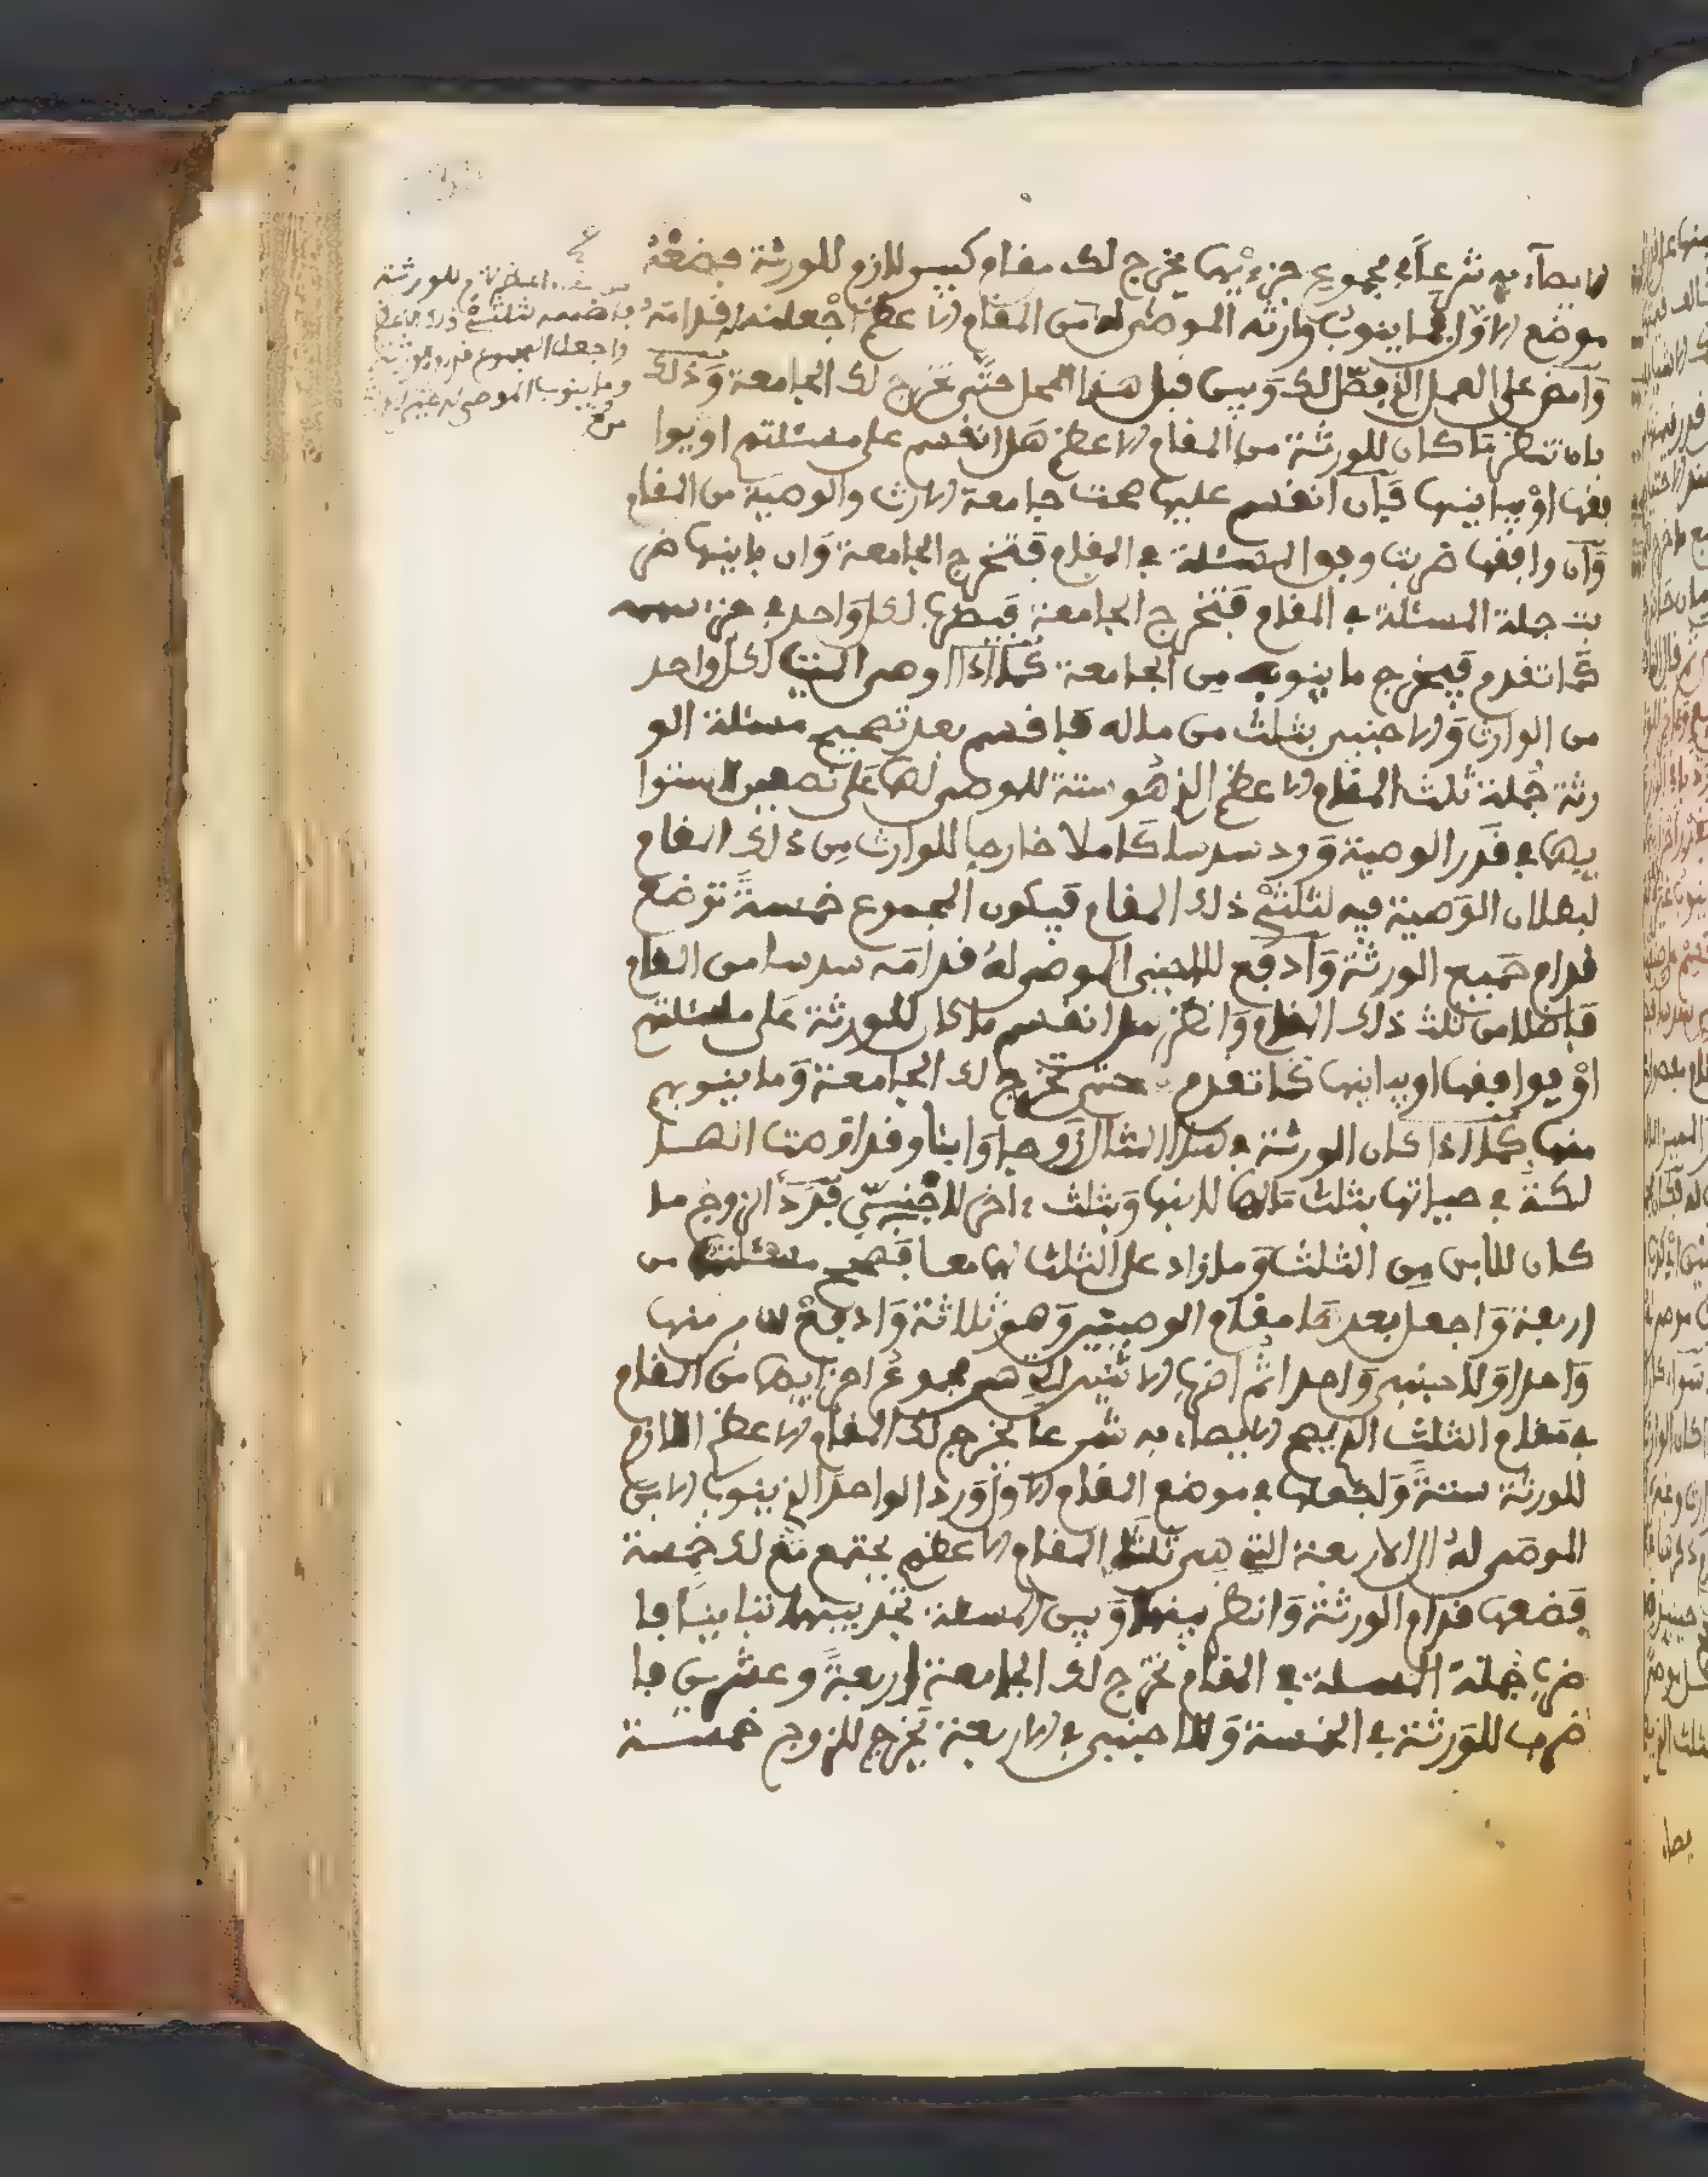 الايصاء به شرعا في مجموع جزءيهما يخرج لك مقام كبير لازم للورثة فضعه
موضع الاول فما ينوب وارثه الموصى له من المقام الاعظم اجعلنه قدامه
وامض على العمل الذي فصل لك وبين قبل هذا المحل حتى تخرج لك الجامعة وذلك
بان تنظر ما كان للورثة من المقام الاعظم هل انقسم على مسئلتهم او يوا
فقها او يباينها فان انقسم عليها صحت جامعة الارث والوصية من المقام
وان وافقها ضربت وفق المسئلة في المقام فتخرج الجامعة وان باينها ضر
بت جملة المسئلة في المقام فتخرج الجامعة فيضرب لكل واحد في جزء سهمه
كما تقدم فيخرج ما ينوبه من الجامعة كما اذا اوصى الميت لكل واحد
من الوارث والاجنبي بثلث من ماله فاقسم بعد تصحيح مسئلة الو
رثة جملة ثلث المقام الاعظم الذي هو ستة للموصى لهما على نصفين لاستوا
ئهما في قدر الوصية ورد سدسا كاملا خارجا للوارث من ذلك المقام
لبطلان الوصية فيه لثلثي ذلك المقام فيكون المجموع خمسة توضع
قدام جميع الورثة وادفع للاجنبي الموصى له قدامه سدسا من المقام
فاضلا من ثلث ذلك المقام وانظر هل انقسم ما كان للورثة على مسئلتهم
او يوافقها او يباينها كما تقدم حتى تخرج لك الجامعة وما ينوبهم
منها كما اذا كان الورثة في هذا المثال زوجا وابنا وقد اوصت الها
لكة في حياتها بثلث مالها لابنها وبثلث ءاخر لاجنبي فرد الزوج ما
كان للابن من الثلث وما زاد على الثلث لهما معا فصحح مسئلته من
اربعة واجعل بعدها مقام الوصيتين وهو ثلاثة وادفع للابن منها
واحدا وللاجنبي واحدا ثم اضرب الاثنين التي هي مجموع اجزايهما من المقام
في مقام الثلث الذي يصح الايصاء به شرعا يخرج لك المقام الاعظم اللازم
للورثة ستة واجعلها في موضع المقام الاول ورد الواحد الذي ينوب الابن
الموصى له الى الاربعة التي هي ثلثا المقام الاعظم يجتمع مع لك خمسة
فضعها قدام الورثة وانظر بينها وبين المسئلة تجد بينهما تباينا فا
ضرب جملة المسئلة في المقام تخرج لك الجامعة اربعة وعشرين فا
ضرب للورثة في الخمسة وللاجنبي في الاربعة يخرج للزوج خمسة
للورثة
ثلثي ذلك
واجعل المجموع قدام الورثة
وما ينوب الموصى له